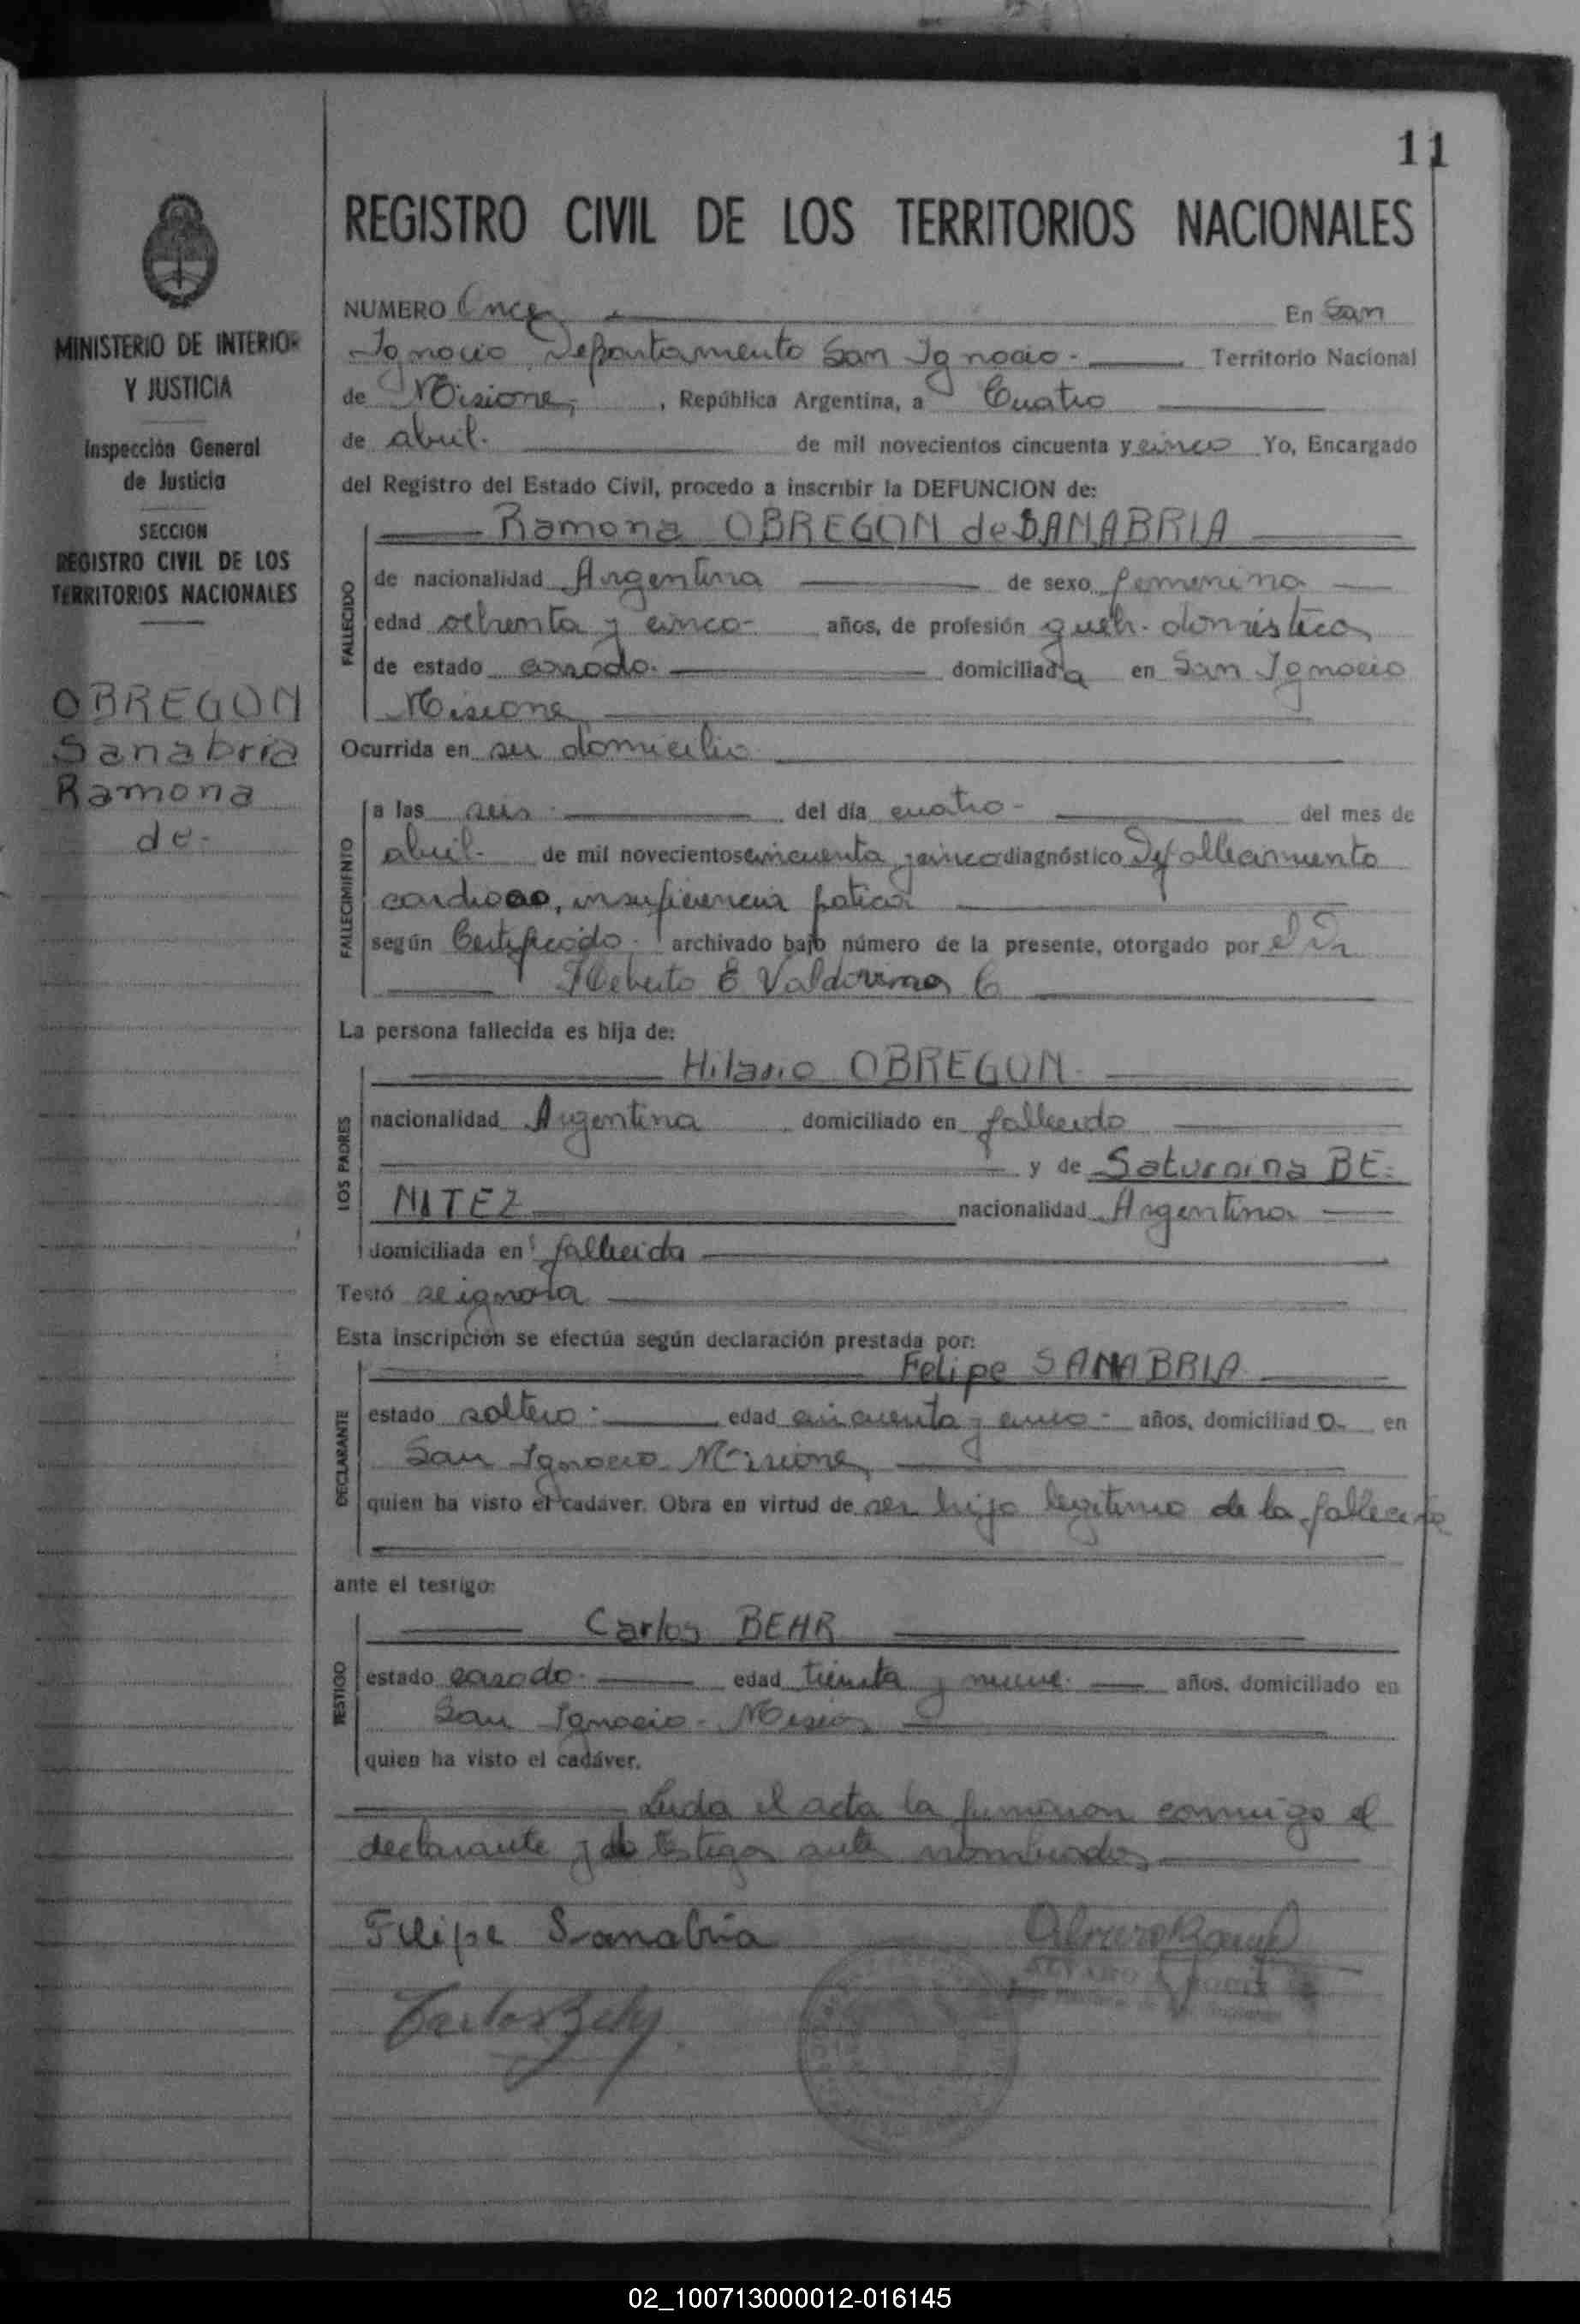 11
REGISTRO CIVIL DE LOS TERRITORIOS NACIONALES
MINISTERIO DE INTERIOR
Y JUSTICIA
Inspección General
de Justicia
SECCION
REGISTRO CIVIL DE LOS
TERRITORIOS NACIONALES
OBREGON
Sanabria
Ramona
de-
NUMERO Once En San
Ignacio, Departamento San Ignacio - Territorio Nacional
de Misiones, República Argentina, a Cuatro
de abril. de mil novecientos cincuenta y cinco Yo, Encargado
del Registro del Estado Civil, procedo a inscribir la DEFUNCION de:
Ramona OBREGON de SANABRIA
FALLECIDO
de nacionalidad Argentina de sexo femenino
edad ochenta y cinco- años, de profesión queh. domésticos
de estado casado. domiciliada en San Ignacio
Misiones
Ocurrida en su domicilio
FALLECIMIENTO
a las seis del día cuatro- del mes de
abril- de mil novecientos cincuenta y cinco diagnóstico Desfallecimiento
cardiaco, insuficiencia
según Certificado- archivado bajo número de la presente, otorgado por el Dr
E
La persona fallecida es hija de:
Hilario OBREGON
LOS PADRES
nacionalidad Argentina domiciliado en fallecido
y de Saturnina BE-
NITEZ nacionalidad Argentina
domiciliada en fallecida
Testó se ignora
Esta inscripción se efectúa según declaración prestada por:
Felipe SANABRIA
DECLARANTE
estado soltero- edad cincuenta y cinco- años, domiciliado en
San Ignacio Misiones
quien ha visto el cadáver. Obra en virtud de ser hijo legitimo de la fallecida
ante el testigo:
Carlos BEHR
TESTIGO
estado casado- edad treinta y nueve- años, domiciliado en
San Ignacio - Misiones
quien ha visto el cadáver.
Leida el acta la firmaron conmigo el
declarante y testigos ante nombrados
Felipe Sanabria
02_100713000012-016145